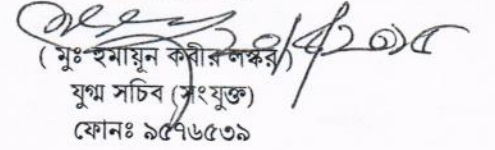 ২০/৪/২০১৫
( মুঃ হুমায়ুন কবীর লস্কর)
যুগ্ম সচিব (সংযুক্ত)
ফোনঃ ৯৫৭৬৫৩৯